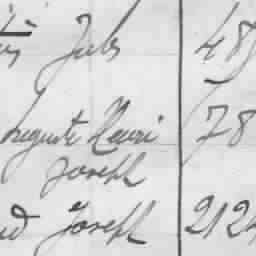 Jules 48
Auguste Henri 78
Joseph
Joseph 212